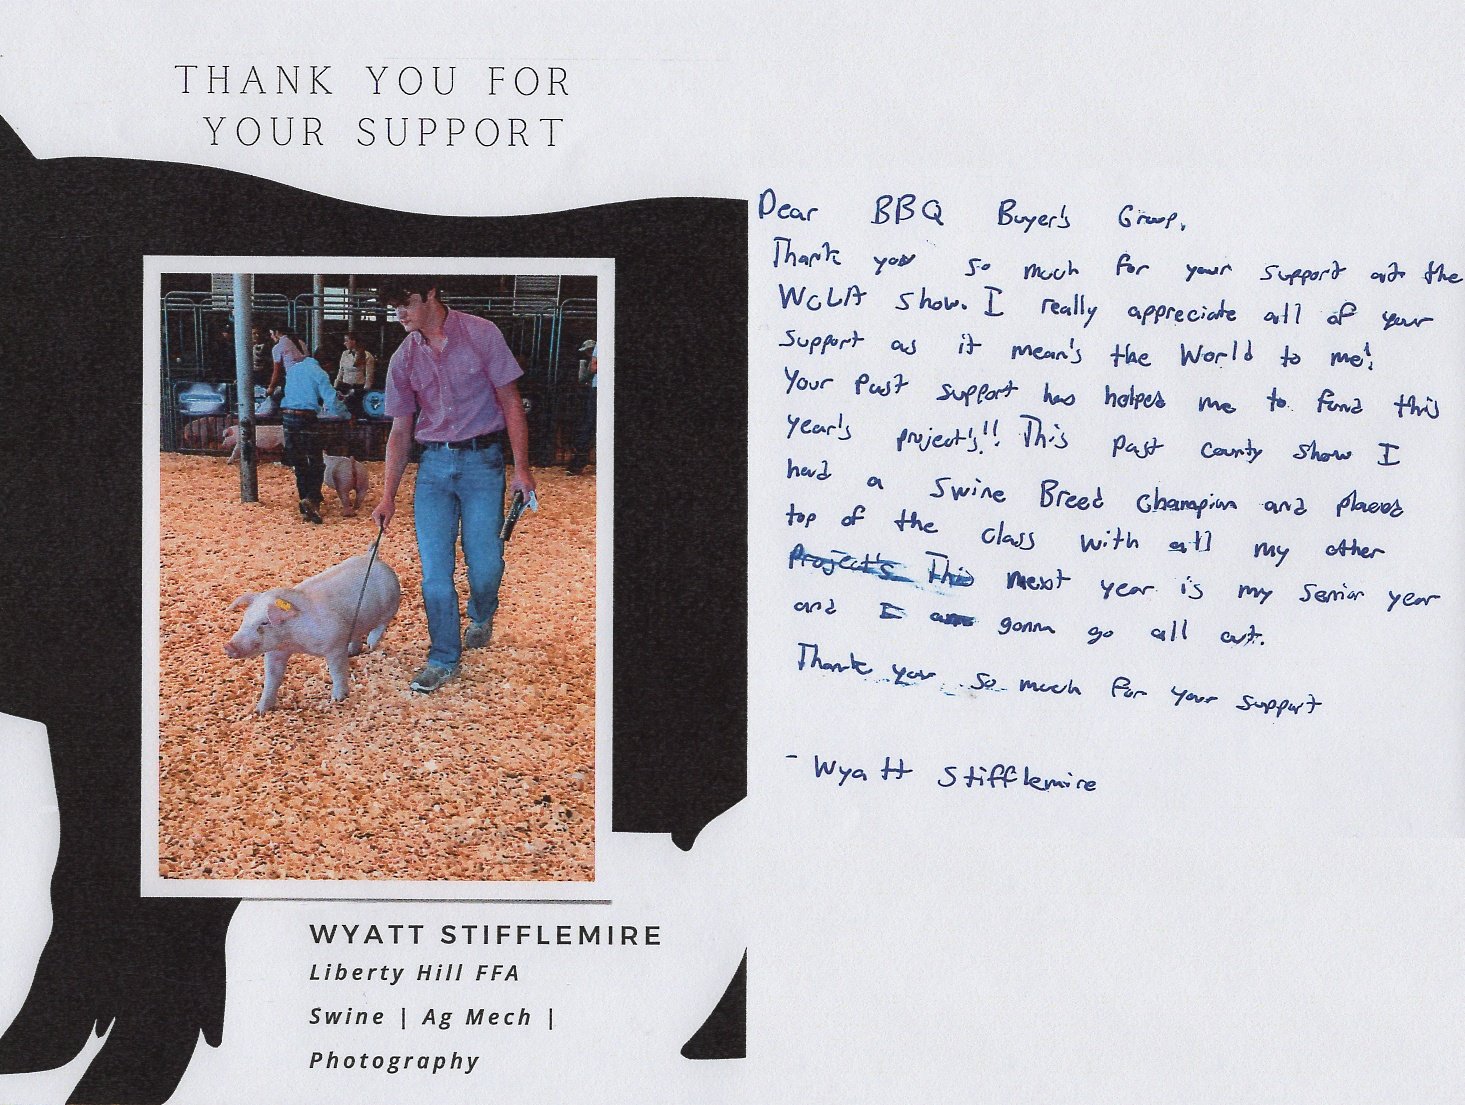 THANK YOU FOR
YOUR SUPPORT
WYATT STIFFLEMIRE
Liberty Hill FFA
Swine | Ag Mech |
Photography
Dear BBQ Buyer's Group,
Thank you so much for your support at the
WCLA show. I really appreciate all of your
support as it mean's the World to me!
Your past support has helped me to fund this
year's project's!! This past county show I
had a Swine Breed Champion and placed
top of the class with all my other
Project's This next year is my Senior year
and I am gonna go all out.
Thank you so much for your support
- Wyatt Stifflemire